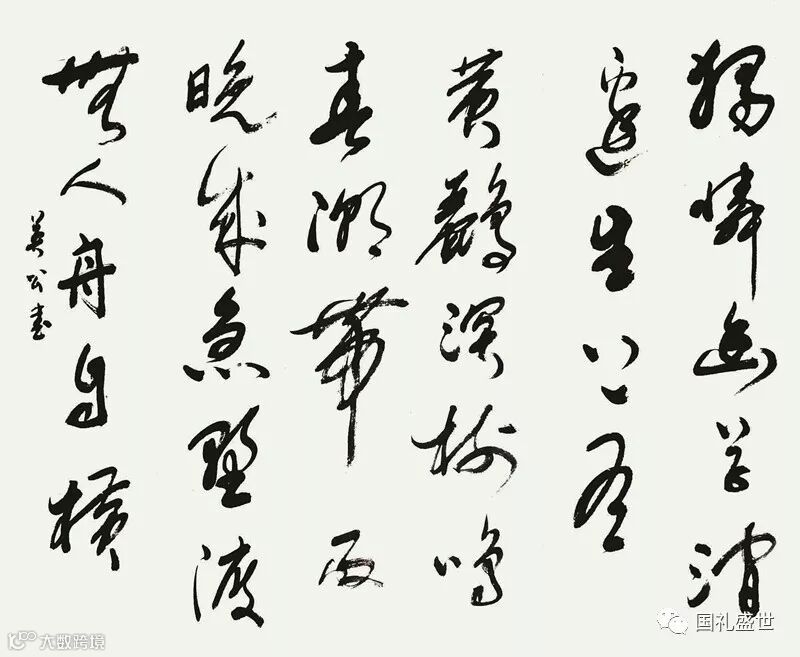 獨憐幽草澗
邊生上有
黃鸝深樹鳴
春潮帶雨
晚來急野渡
無人舟自橫
英公書
国礼盛世
大数跨境